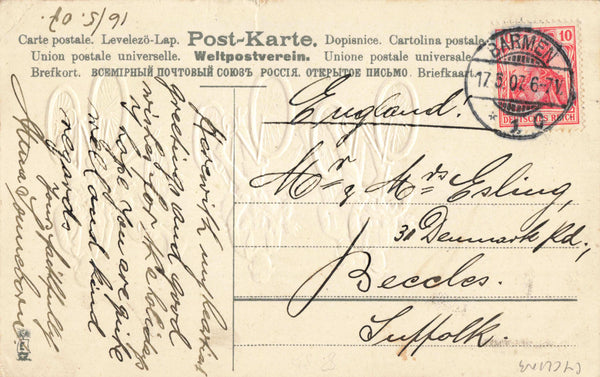 16/5.07
Post-Karte.
Carte postale. Levelezö-Lap. Dopisnice. Cartolina postale.
Union postale universelle. Weltpostverein. Unione postale universale.
Brefkort. ВСЕМІРНЫЙ ПОЧТОВЫЙ СОЮЗЪ РОССІЯ. ОТКРЫТОЕ ПИСЬМО. Briefkaart.
BARMEN
17.5.07.6-7V.
* 1 c
10
DEUTSCHES REICH
England!
Mr & Mrs Esling,
30 Denmark Rd.,
Beccles.
Suffolk.
Herewith my heartiest
greetings and good
wishes for the holidays
I hope you are quite
well and kind
regards
Yours faithfully